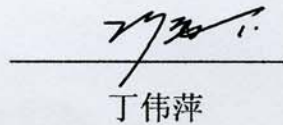 丁伟萍